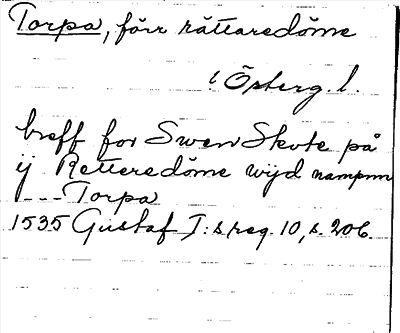 Torpa, förr rättaredöme
i Österg. l.
breff for Swen Skote på
ij Retteredöme wijd nampnn
--- Torpa
1535 Gustaf I:s reg. 10, s. 206.